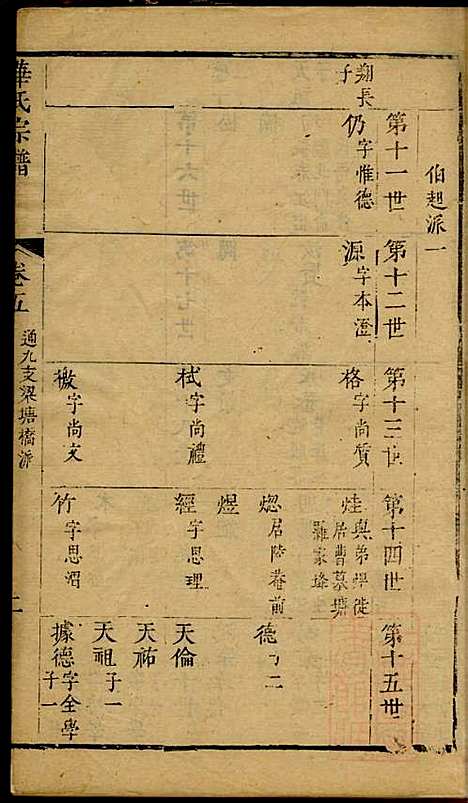 伯起派一
第十一世
第十二世
第十三世
第十四世
第十五世
翔長子
仍字惟德
源字本澄
格字尚質
烓與弟學徙
居曹墓塘
煾居陸巷前
德
煜
栻字尚禮
經字思理
天倫
天祐
天祖子一
檄字尚文
竹字思沼
據德字全學
子一
氏宗譜
卷五
通九支梁塘橋派
二